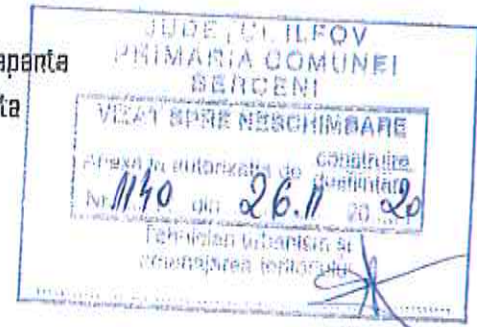 apanta
ta
JUDEȚUL ILFOV
PRIMARIA COMUNEI
BERCENI
VIZAT SPRE NESCHIMBARE
Anexa la autorizatia de construire
desfiintare
Nr. 1140 din 26.11 2020
Tehnician urbanism si
amenajarea teritoriului